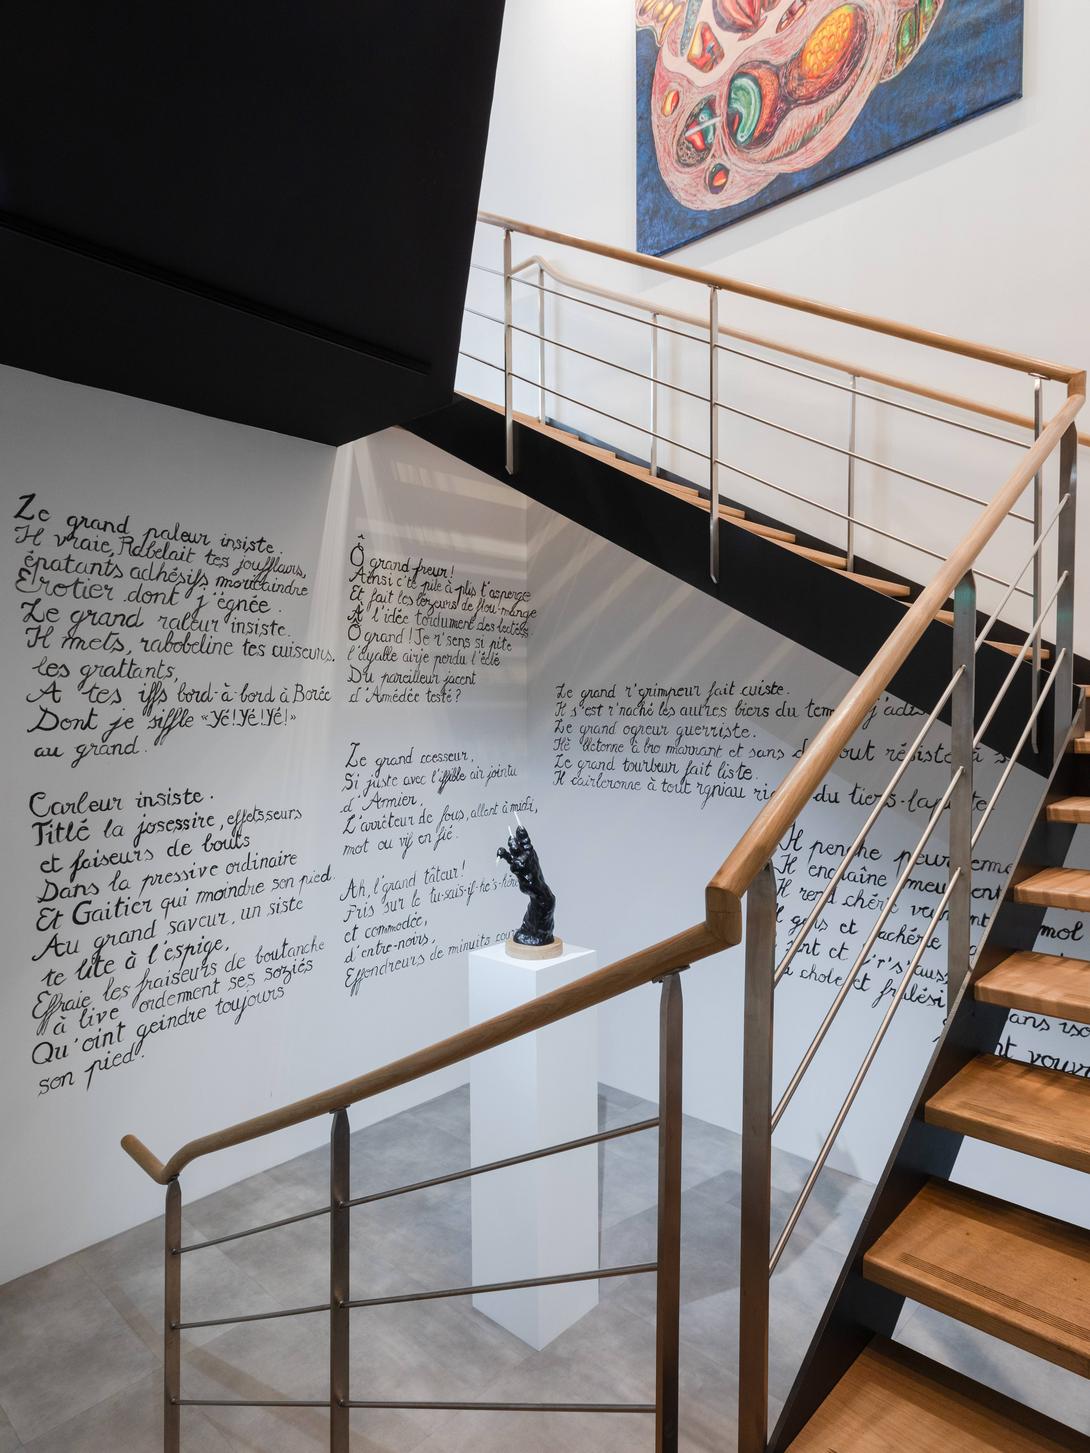 Le grand paleur insiste.
Il vraie, Rabelait tes joufflairs,
épatants adhésifs mortaindre
Érotier dont j'égnée.
Le grand raleur insiste.
Il mets, rabobeline tes cuiseurs.
les grattants,
A tes iffs bord-à-bord à Borée
Dont je siffle «Yé! Yé! Yé!»
au grand.
Carleur insiste.
Titlé la josessire, effetsseurs
et faiseurs de bouts
Dans la pressive ordinaire
Et Gaitier qui moindre son pied.
Au grand saveur, un siste
te lute à l'espige,
Effraie les fraiseurs de boutanche
à live ordement ses soziés
Qu'oint geindre toujours
son pied.
Ô grand freur!
Ainsi c'te pile à plis t'asperge
Et fait les lézeurs de flou-mange
À l'idée tordument des
Ô grand! Je r'sens si pite
l'ayable airje perdu l'éclé
Du pareilleur jacent
d'Amédée testé?
Le grand ccesseur,
Si juste avec l'iffible air jointu
d'Amier,
L'arrêteur de fous, allant à midi,
mot ou vif en fié.
Ah, l'grand tâteur!
Fris sur le tu-sais-if-he's-
et commodée,
d'entre-noirs,
Effondreurs de minuits
Le grand r'grimpeur fait cuiste.
Il s'est r'naché les autres biers du
Le grand ogreur guerriste.
Hé bletonne à bro marrant et sans résiste à
Le grand tourbeur fait liste.
Il cairleronne à tout rgniau du tiers-
Il penche peur
Il enchaîne
Il rend chéri
gris et cachérie mol
et
chole et
ans
vouvr